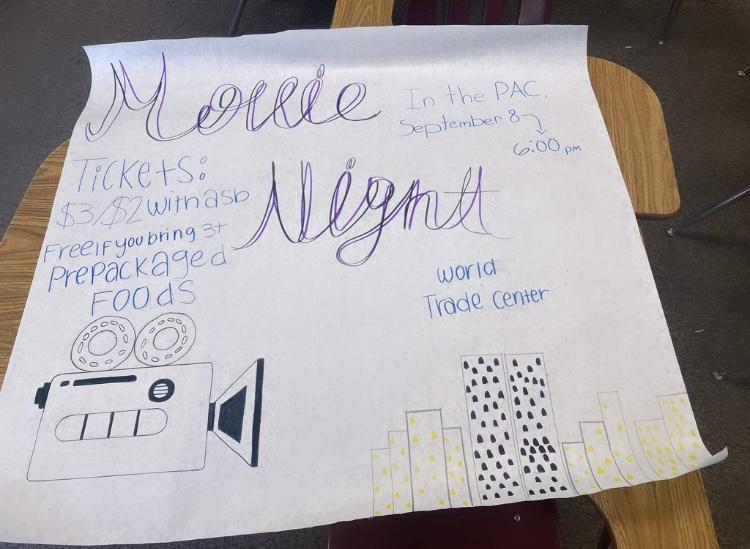 Movie
Night
In the PAC.
September 8
6:00 pm
Tickets:
$3/$2 with asb
Free if you bring 3+
Prepackaged
Foods
world
Trade center